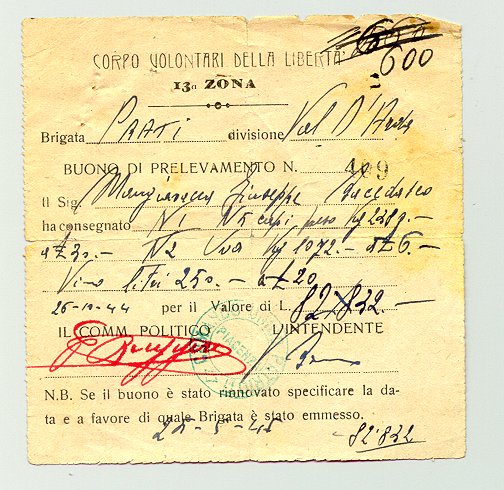 600
600
CORPO VOLONTARI DELLA LIBERTA'
13a ZONA
Brigata PRATI divisione Val D'Arda
BUONO DI PRELEVAMENTO N. 449
Il Sig. Giuseppe
ha consegnato N 1 peso
a £ 30.- N 2 Uva Kg 1072.- a £ 6.-
Vino litri 250.- a £ 20
26-10-44 per il Valore di L. 82.832.-
IL COMM. POLITICO L'INTENDENTE
N.B. Se il buono è stato rinnovato specificare la da-
ta e a favore di quale Brigata è stato emmesso.
25-5-45
82'832